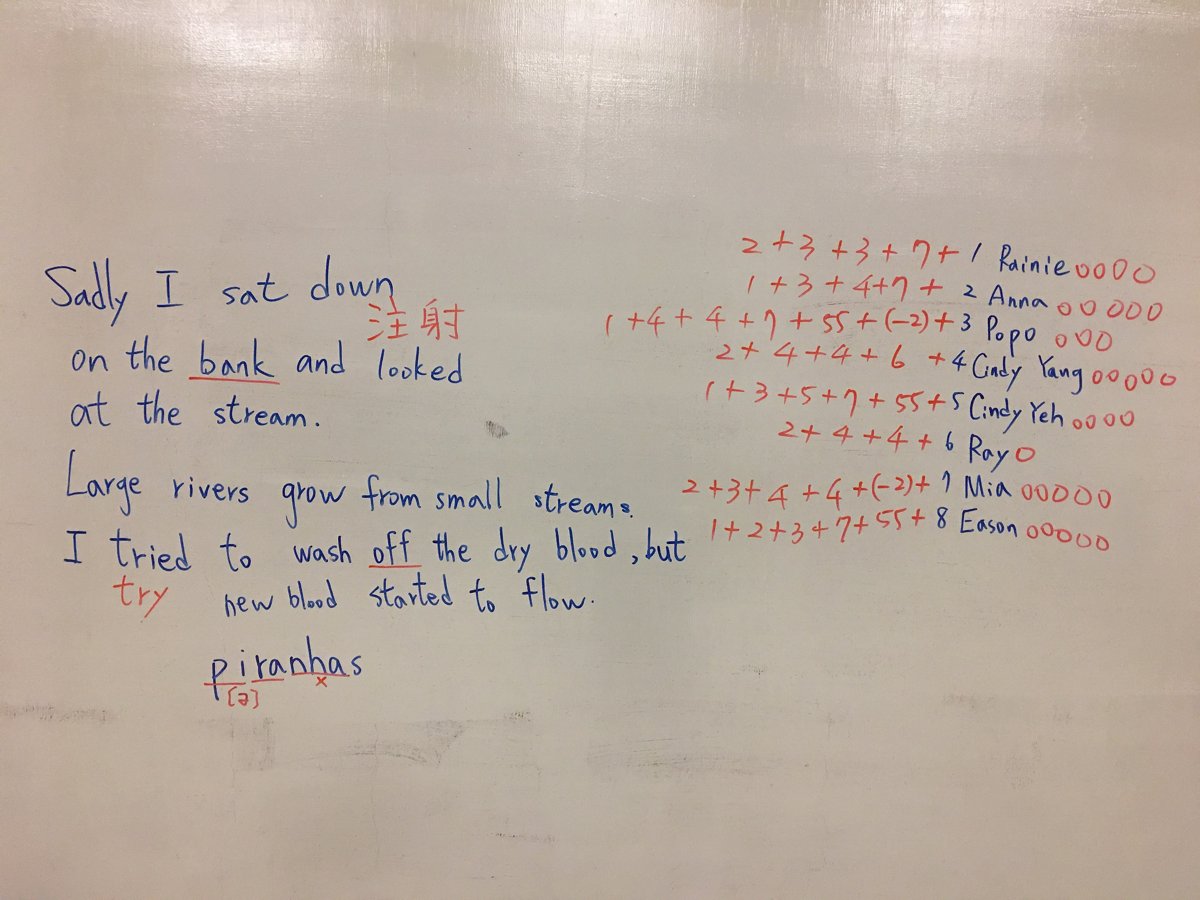 Sadly I sat down
注射
on the bank and looked
at the stream.
Large rivers grow from small streams.
I tried to wash off the dry blood, but
try new blood started to flow.
piranhas
[ə] x
2+3+3+7+1 Rainie 0000
1+3+4+7+2 Anna 00000
1+4+4+7+55+(-2)+3 Popo 000
2+4+4+6+4 Cindy Yang 00000
1+3+5+7+55+5 Cindy Yeh 0000
2+4+4+6 Ray 0
2+3+4+4+(-2)+7 Mia 00000
1+2+3+7+55+8 Eason 00000